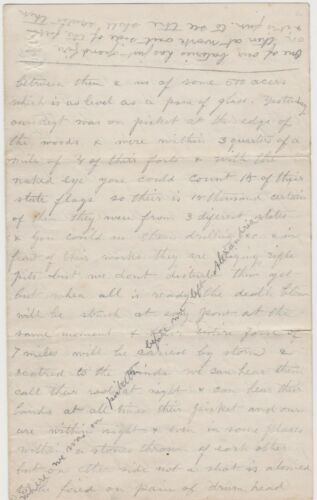 between them & us of some 500 acers
which is as level as a pane of glass. Yesterday
our Regt was on picket at the edge of
the woods & were within 3 quarters of a
mile of 4 of their forts & with the
naked eye you could count 15 of their
state flags so their is 15 thousand certain
of them they were from 3 diferent states
& you could see them drilling & in
front of their works they are digging rifle
pits but we dont disturb them yet
but when all is ready the death blow
will be struck at every point at the
same moment & their entire force of
7 miles will be carried by storm &
scatred to the winds we can hear them
call their roll at night & can hear their
bands at all times their picket and ours
are within sight & even in some places
within a stones throw of each other
but on either side not a shot is alowed
to be fired on paine of drum head
where we were on picket before we left Alexandria
One of our baloons has just